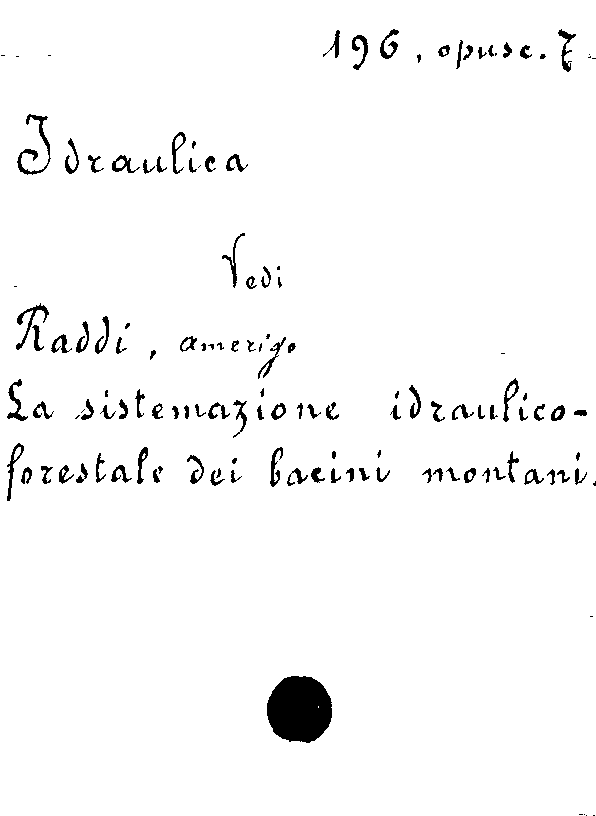 196, opusc. 7
Idraulica
Vedi
Raddi, Amerigo
La sistemazione idraulico-
forestale dei bacini montani.